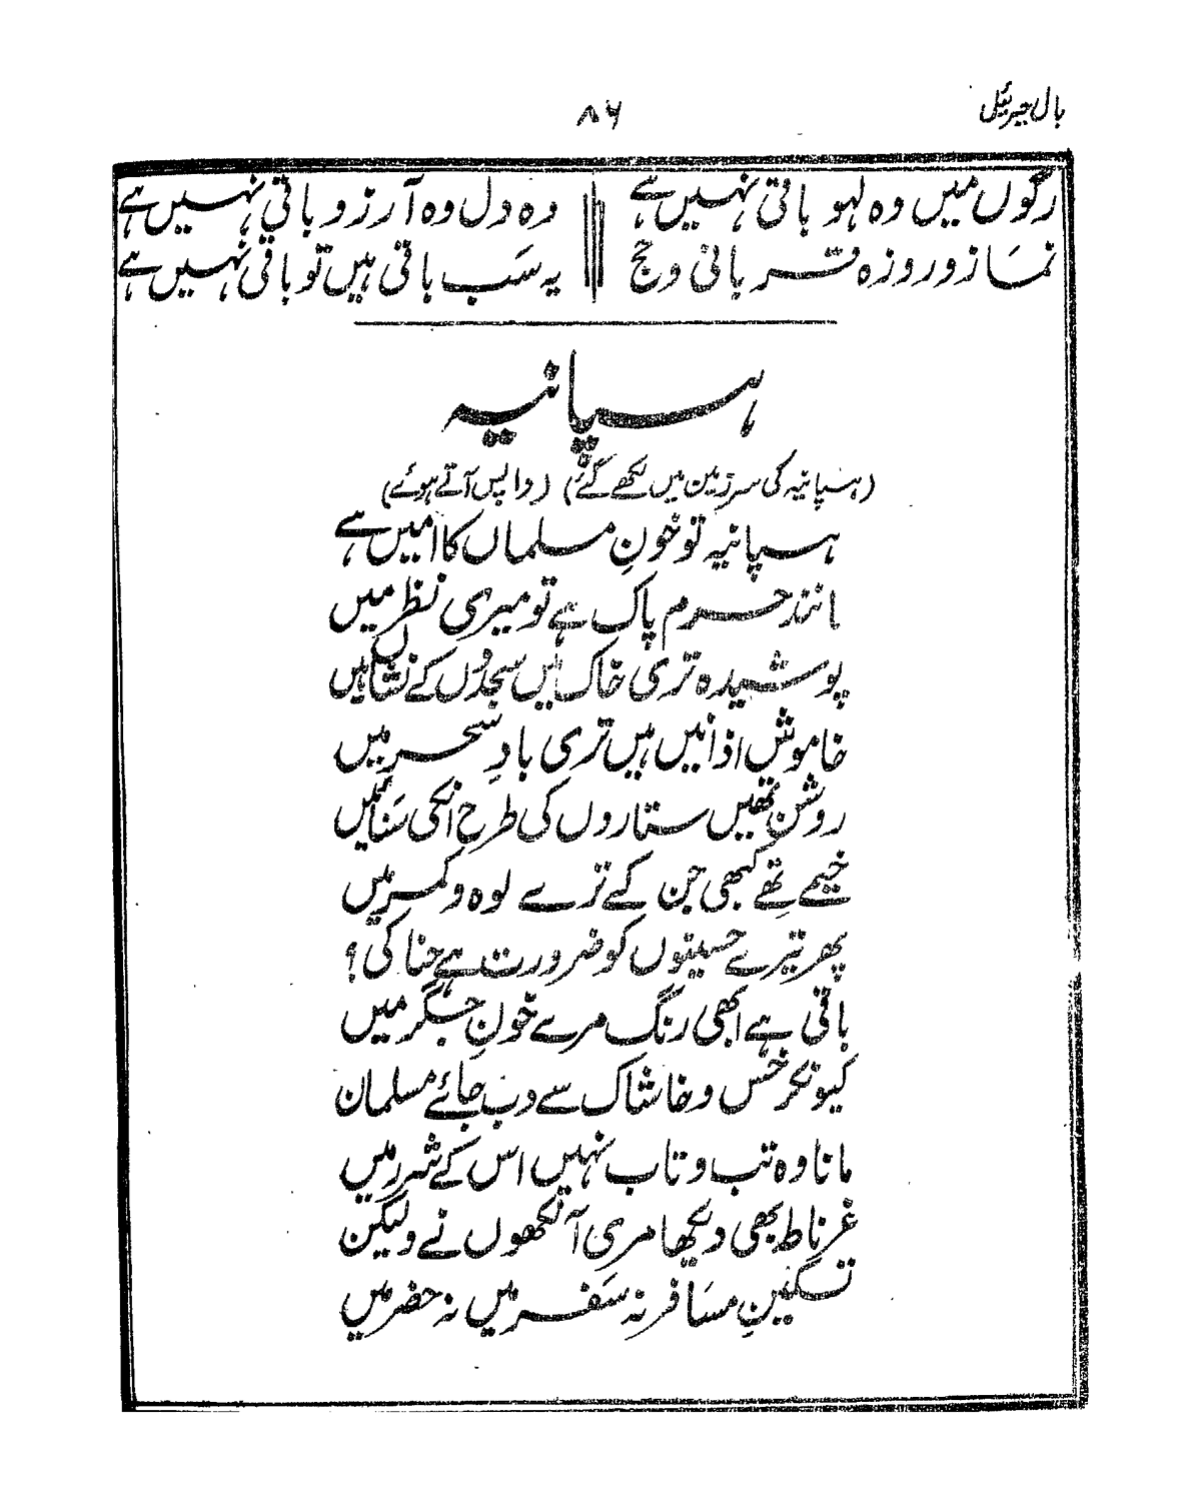 بال جبرئیل
۸۶
رگوں میں وہ لہو باقی نہیں ہے
وہ دل وہ آرزو باقی نہیں ہے
نماز و روزہ قربانی و حج
یہ سب باقی ہیں تو باقی نہیں ہے
ہسپانیہ
(ہسپانیہ کی سرزمین میں لکھے گئے) (واپس آتے ہوئے)
ہسپانیہ تو خونِ مسلماں کا امیں ہے
مانند حرم پاک ہے تو میری نظر میں
پوشیدہ تری خاک میں سجدوں کے نشاں ہیں
خاموش اذانیں ہیں تری بادِ سحر میں
روشن تھیں ستاروں کی طرح انکی سنانیں
خیمے تھے کبھی جن کے ترے کوہ و کمر میں
پھر تیرے حسینوں کو ضرورت ہے حنا کی؟
باقی ہے ابھی رنگ مرے خونِ جگر میں
کیونکر خس و خاشاک سے دب جائے مسلمان
مانا وہ تب و تاب نہیں اس کے شرر میں
غرناطہ بھی دیکھا مری آنکھوں نے ولیکن
تسکینِ مسافر نہ سفر میں نہ حضر میں